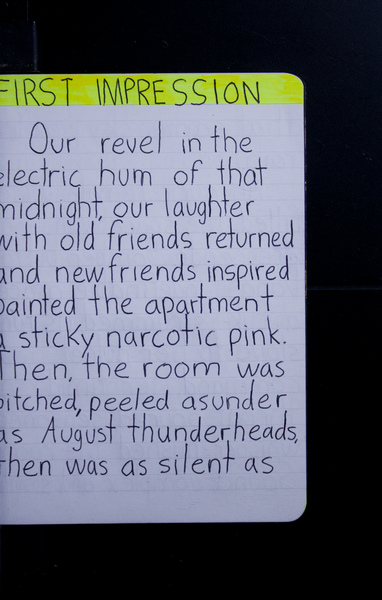 FIRST IMPRESSION
Our revel in the
electric hum of that
midnight, our laughter
with old friends returned
and new friends inspired
painted the apartment
a sticky narcotic pink.
Then, the room was
pitched, peeled asunder
as August thunderheads,
then was as silent as